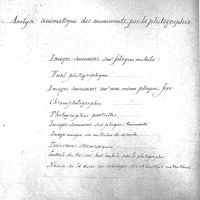 Analyse cinématique des mouvements par la photographie
Images successives sur plaque mobile
Fusil photographique
Images successives sur une même plaque fixe
Chronophotographie
Photographies partielles
Images successives sur plaque tournante
Image unique en millième de seconde
Trajectoires stéréoscopiques
Contrôle du par la photographie
Mesure de la durée des éclairages instantanés